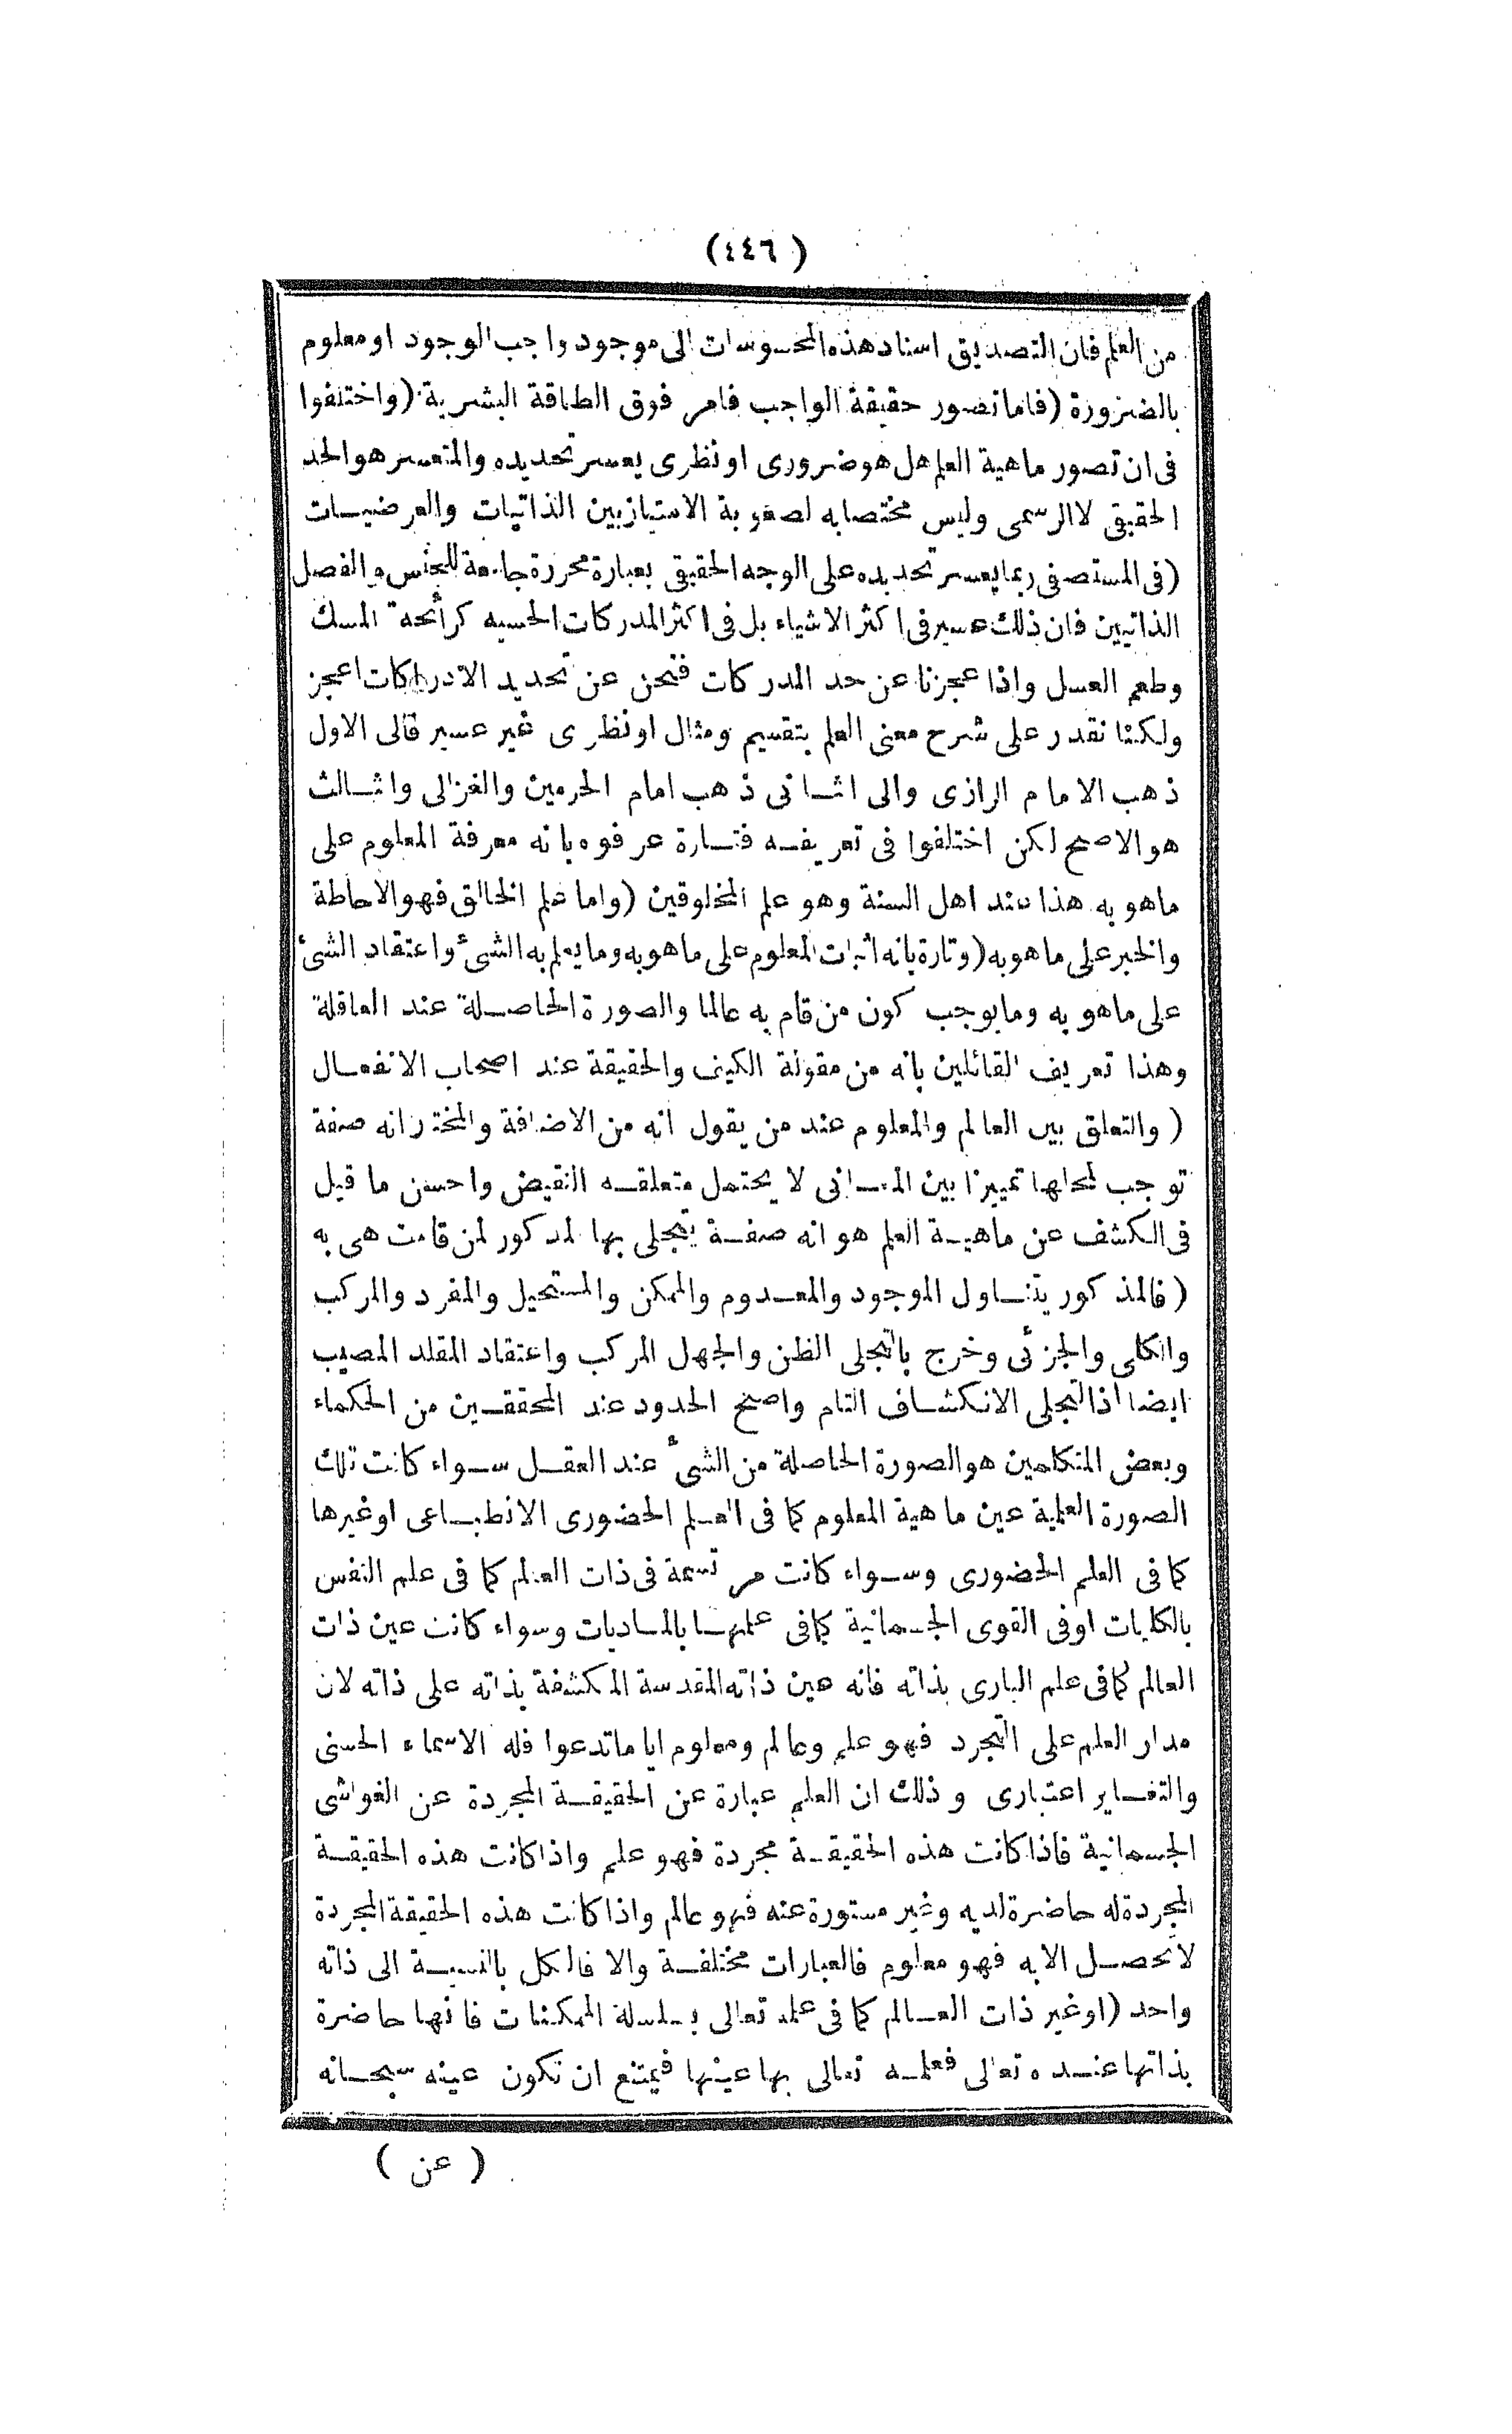 (٤٤٦)
من العلم فان التصديق اسناد هذه المحسوسات الى موجود واجب الوجود او معلوم
بالضرورة (فاما تصور حقيقة الواجب فامر فوق الطاقة البشرية (واختلفوا
فى ان تصور ماهية العلم هل هو ضرورى او نظرى يعسر تحديده والمتعسر هو الحد
الحقيقى لا الرسمى وليس مختصا به لصعوبة الامتياز بين الذاتيات والعرضيات
(فى المستصفى ربما يعسر تحديده على الوجه الحقيقى بعبارة محررة جامعة للجنس والفصل
الذاتيين فان ذلك عسير فى اكثر الاشياء بل فى اكثر المدركات الحسيه كرائحة المسك
وطعم العسل واذا عجزنا عن حد المدركات فنحن عن تحديد الادراكات اعجز
ولكنا نقدر على شرح معنى العلم بتقسيم ومثال او نظرى غير عسير فالى الاول
ذهب الامام الرازى والى الثانى ذهب امام الحرمين والغزالى والثالث
هو الاصح لكن اختلفوا فى تعريفه فتارة عرفوه بانه معرفة المعلوم على
ماهو به هذا عند اهل السنة وهو علم المخلوقين (واما علم الخالق فهو الاحاطة
والخبر على ما هو به (وتارة بانه اثبات المعلوم على ما هو به وما يعلم به الشئ واعتقاد الشئ
على ماهو به وما يوجب كون من قام به عالما والصورة الحاصلة عند العاقلة
وهذا تعريف القائلين بانه من مقولة الكيف والحقيقة عند اصحاب الانفعال
(والتعلق بين العالم والمعلوم عند من يقول انه من الاضافة والمختار انه صفة
توجب لمحلها تمييزا بين المعانى لا يحتمل متعلقه النقيض واحسن ما قيل
فى الكشف عن ماهية العلم هو انه صفة يتجلى بها المذكور لمن قامت هى به
(فالمذكور يتناول الموجود والمعدوم والممكن والمستحيل والمفرد والمركب
والكلى والجزئى وخرج بالتجلى الظن والجهل المركب واعتقاد المقلد المصيب
ايضا اذ التجلى الانكشاف التام واصح الحدود عند المحققين من الحكماء
وبعض المتكلمين هو الصورة الحاصلة من الشئ عند العقل سواء كانت تلك
الصورة العلمية عين ماهية المعلوم كما فى العلم الحضورى الانطباعى او غيرها
كما فى العلم الحضورى وسواء كانت مرتسمة فى ذات العالم كما فى علم النفس
بالكليات او فى القوى الجسمانية كما فى علمها بالماديات وسواء كانت عين ذات
العالم كما فى علم البارى بذاته فانه عين ذاته المقدسة المكشفة بذاته على ذاته لان
مدار العلم على التجرد فهو علم وعالم ومعلوم اياما تدعوا فله الاسماء الحسنى
والتغاير اعتبارى وذلك ان العلم عبارة عن الحقيقة المجردة عن الغواشى
الجسمانية فاذا كانت هذه الحقيقة مجردة فهو علم واذا كانت هذه الحقيقة
المجردة له حاضرة لديه وغير مستورة عنه فهو عالم واذا كانت هذه الحقيقة المجردة
لا تحصل الا به فهو معلوم فالعبارات مختلفة والا فالكل بالنسبة الى ذاته
واحد (او غير ذات العالم كما فى علمه تعالى بسلسلة الممكنات فانها حاضرة
بذاتها عنده تعالى فعلمه تعالى بها عينها فيمتنع ان تكون عينه سبحانه
(عن)